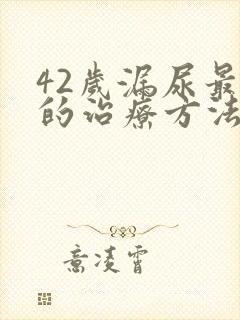 42歲漏尿最
的治療方法
意凌霄